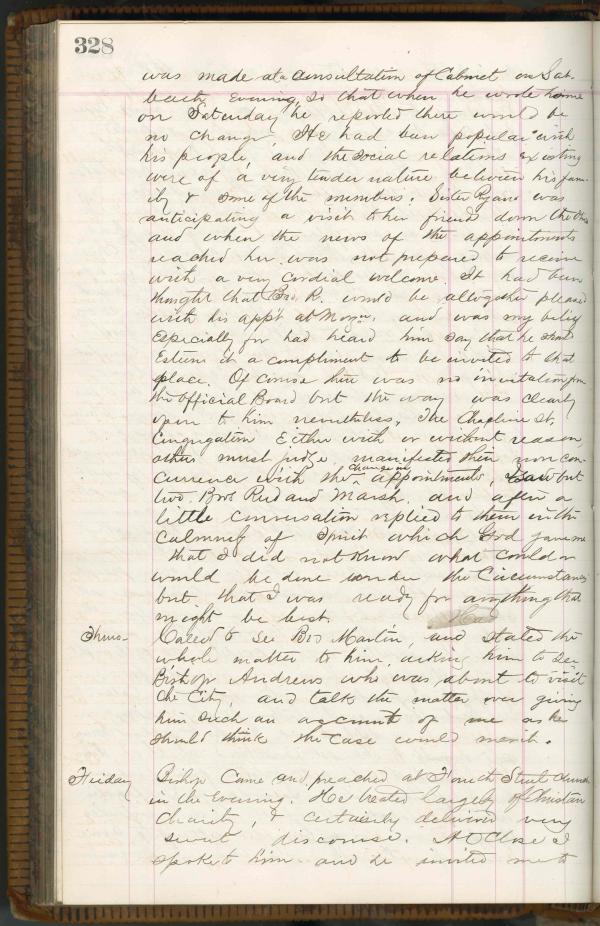 328
was made at a consultation of Cabinet on Sat-
beath evening, so that when he wrote home
on Saturday he reported there would be
no change. He had been popular with
his people, and the social relations existing
were of a very tender nature between his fam-
ily & some of the members. Sister Ryans was
anticipating a visit to her friends down the
and when the news of the appointments
reached her was not prepared to receive
with a very cordial welcome. It had been
thought that Bro. R. would be altogether pleased
with his appt at Morgn. and was my belief
especially for had heard him say that he
esteem it a compliment to be invited to that
place. Of course there was no invitation from
the Official Board but the way was clearly
open to him nevertheless. The Chapline St.
Congregation either with or without reason
others must judge manifested their noncon-
currence with the change in appointments, Saw but
two. Bros Reed and Marsh. and after a
little conversation replied to them in the
calmness of spirit which God gave me
that I did not know what could or
would be done under the Circumstances
but that I was ready for anything that
might be best.
Thurs- Called to see Bro Martin, and stated the
whole matter to him, asking him to see
Bishop Andrews who was about to visit
the City, and talk the matter over giving
him such an account of me as he
should think the case would merit.
Friday Bishop Came and preached at Fourth Street Church
in the evening. He treated largely of Christian
Charity, & certainly delivered very
sweet discourse. At Close I
spoke to him and he invited me to